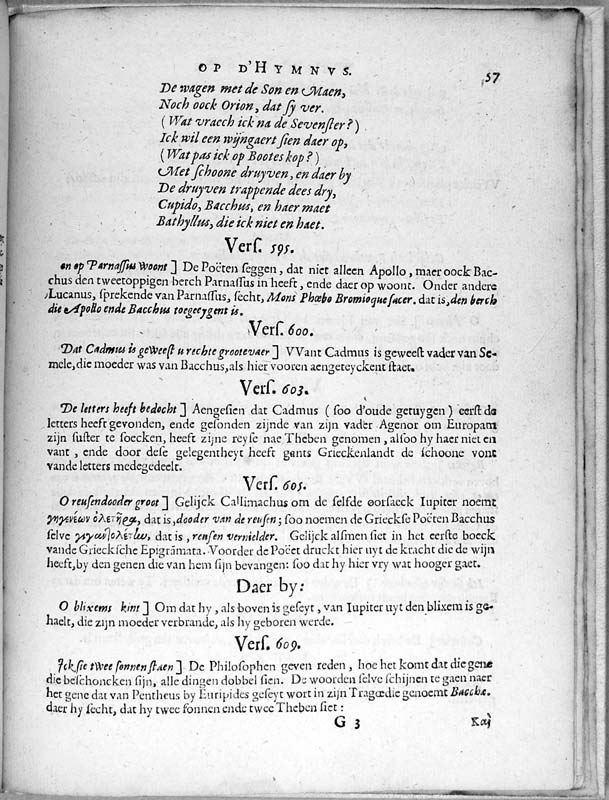 OP D'HYMNVS. 57
De wagen met de Son en Maen,
Noch oock Orion, dat sy ver.
(Wat vraech ick na de Sevenster?)
Ick wil een wijngaert sien daer op,
(Wat pas ick op Bootes kop?)
Met schoone druyven, en daer by
De druyven trappende dees dry,
Cupido, Bacchus, en haer maet
Bathyllus, die ick niet en haet.
Vers. 595.
en op Parnassus woont] De Poëten seggen, dat niet alleen Apollo, maer oock Bac-
chus den tweetoppigen berch Parnassus in heeft, ende daer op woont. Onder andere
Lucanus, sprekende van Parnassus, secht, Mons Phœbo Bromioque sacer. dat is, den berch
die Apollo ende Bacchus toegeeygent is.
Vers. 600.
Dat Cadmus is geweest u rechte grootevaer] VVant Cadmus is geweest vader van Se-
mele, die moeder was van Bacchus, als hier vooren aengeteyckent staet.
Vers. 603.
De letters heeft bedocht] Aengesien dat Cadmus (soo d'oude getuygen) eerst de
letters heeft gevonden, ende gesonden zijnde van zijn vader Agenor om Europam
zijn suster te soecken, heeft zijne reyse nae Theben genomen, alsoo hy haer niet en
vant, ende door dese gelegentheyt heeft gants Grieckenlandt de schoone vont
vande letters medegedeelt.
Vers. 605.
O reusendooder groot] Gelijck Callimachus om de selfde oorsaeck Iupiter noemt
γηγενέων ὀλετῆρα, dat is, dooder van de reusen; soo noemen de Grieckse Poëten Bacchus
selve γιγαντολέτην, dat is, reusen vernielder. Gelijck alsmen siet in het eerste boeck
vande Griecksche Epigrāmata. Voorder de Poëet druckt hier uyt de kracht die de wijn
heeft, by den genen die van hem sijn bevangen: soo dat hy hier vry wat hooger gaet.
Daer by:
O blixems kint] Om dat hy, als boven is geseyt, van Iupiter uyt den blixem is ge-
haelt, die zijn moeder verbrande, als hy geboren werde.
Vers. 609.
Ick sie twee sonnen staen] De Philosophen geven reden, hoe het komt dat die gene
die beschoncken sijn, alle dingen dobbel sien. De woorden selve schijnen te gaen naer
het gene dat van Pentheus by Euripides geseyt wort in zijn Tragœdie genoemt Bacchæ.
daer hy secht, dat hy twee sonnen ende twee Theben siet:
G 3 Καὶ